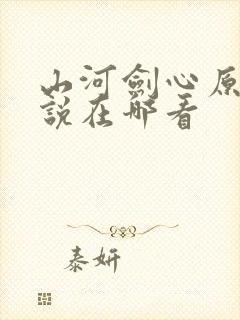 山河劍心原
說在哪看
泰妍